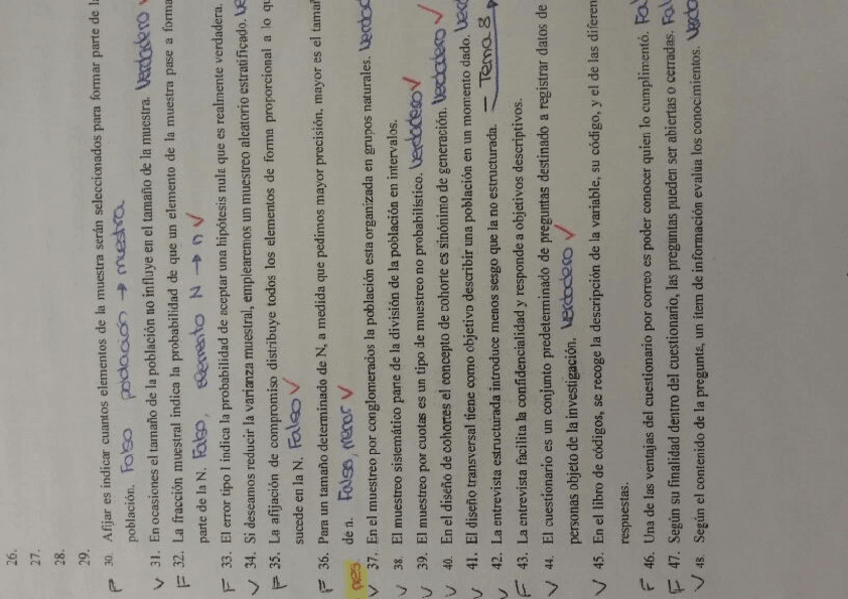 26.
27.
28.
29.
F 30. Afijar es indicar cuantos elementos de la muestra serán seleccionados para formar parte de la
población. Falso población → muestra
V 31. En ocasiones el tamaño de la población no influye en el tamaño de la muestra. Verdadero ✓
F 32. La fracción muestral indica la probabilidad de que un elemento de la muestra pase a forma
parte de la N. Falso, elemento N → n ✓
F 33. El error tipo I indica la probabilidad de aceptar una hipótesis nula que es realmente verdadera.
V 34. Si deseamos reducir la varianza muestral, emplearemos un muestreo aleatorio estratificado. Ve
F 35. La afijación de compromiso distribuye todos los elementos de forma proporcional a lo qu
sucede en la N. Falso ✓
F 36. Para un tamaño determinado de N, a medida que pedimos mayor precisión, mayor es el tamañ
de n. Falso, menor ✓
V 37. En el muestreo por conglomerados la población esta organizada en grupos naturales. Verdad
V 38. El muestreo sistemático parte de la división de la población en intervalos.
V 39. El muestreo por cuotas es un tipo de muestreo no probabilístico. Verdadero ✓
V 40. En el diseño de cohortes el concepto de cohorte es sinónimo de generación. Verdadero ✓
V 41. El diseño transversal tiene como objetivo describir una población en un momento dado. Verd
V 42. La entrevista estructurada introduce menos sesgo que la no estructurada. — Tema 8
F 43. La entrevista facilita la confidencialidad y responde a objetivos descriptivos.
V 44. El cuestionario es un conjunto predeterminado de preguntas destinado a registrar datos de
personas objeto de la investigación. Verdadero ✓
V 45. En el libro de códigos, se recoge la descripción de la variable, su código, y el de las diferen
respuestas.
F 46. Una de las ventajas del cuestionario por correo es poder conocer quien lo cumplimentó. Fal
F 47. Según su finalidad dentro del cuestionario, las preguntas pueden ser abiertas o cerradas. Fal
V 48. Según el contenido de la pregunta, un item de información evalúa los conocimientos. Verdo